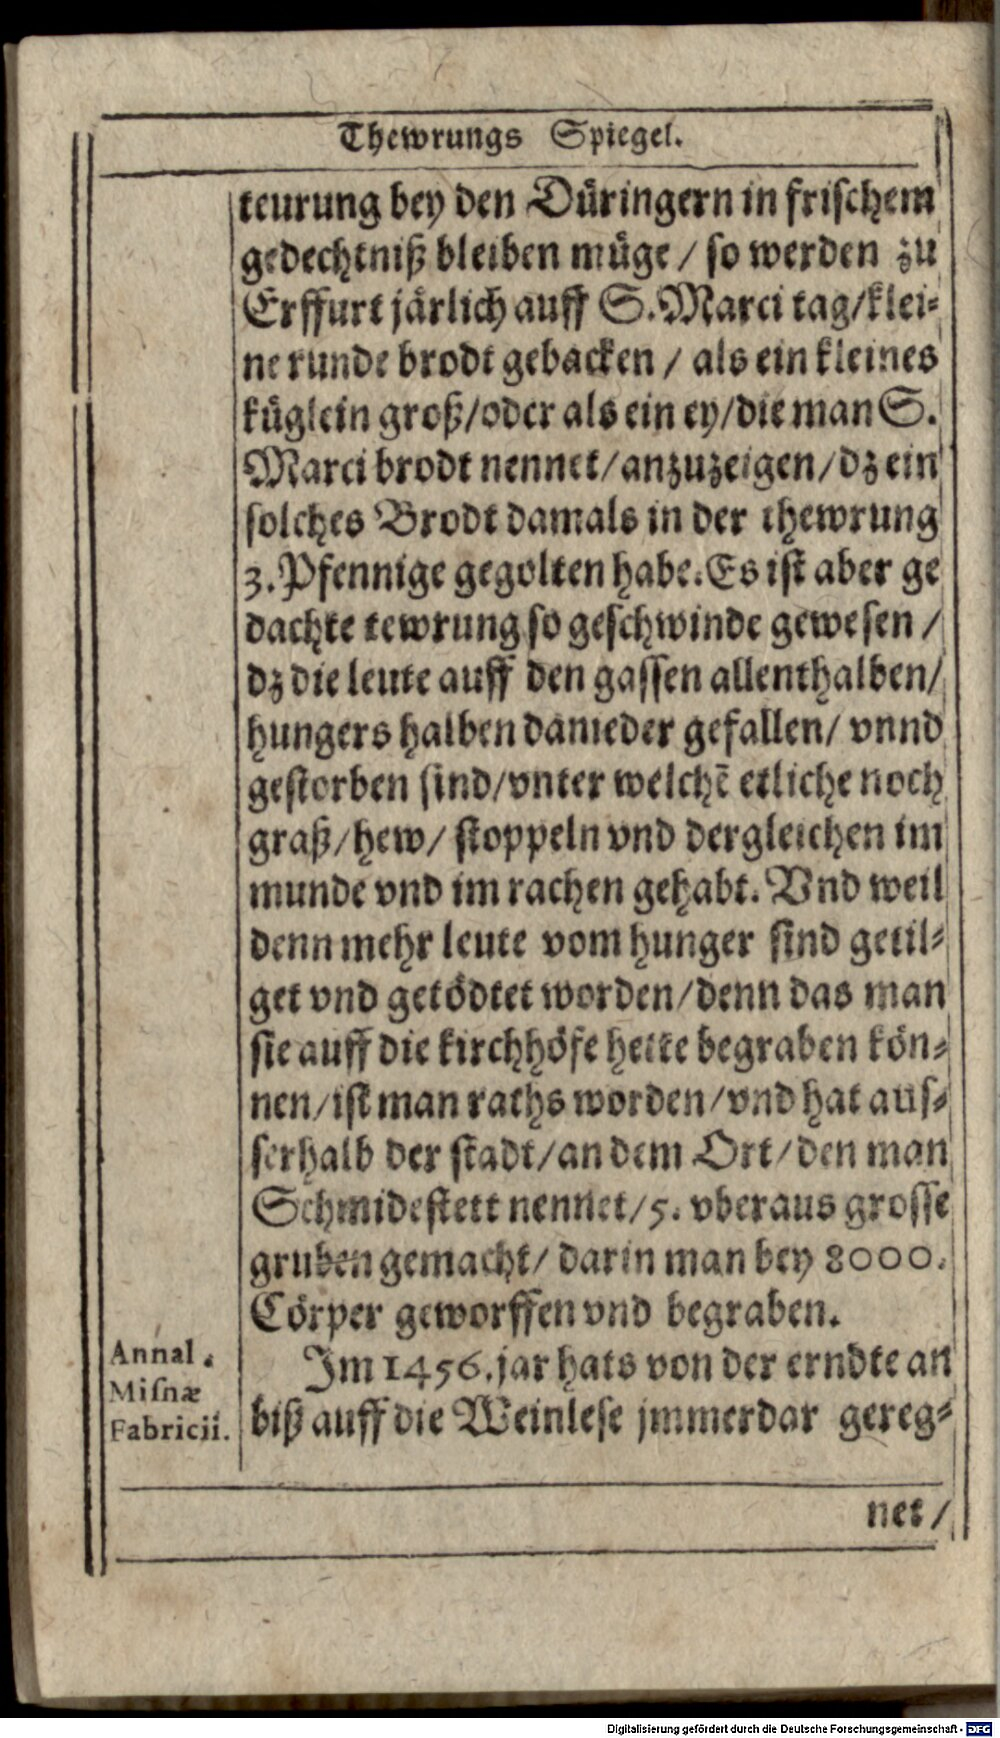 Thewrungs Spiegel.
teurung bey den Düringern in frischem
gedechtniß bleiben müge / so werden zu
Erffurt järlich auff S. Marci tag/klei-
ne runde brodt gebacken / als ein kleines
küglein groß/oder als ein ey/die man S.
Marci brodt nennet/anzuzeigen/dz ein
solches Brodt damals in der thewrung
3. Pfennige gegolten habe. Es ist aber ge
dachte tewrung so geschwinde gewesen /
dz die leute auff den gassen allenthalben/
hungers halben danieder gefallen/ vnnd
gestorben sind/vnter welchē etliche noch
graß/hew/ stoppeln vnd dergleichen im
munde vnd im rachen gehabt. Vnd weil
denn mehr leute vom hunger sind getil-
get vnd getödtet worden/denn das man
sie auff die kirchhöfe hette begraben kön-
nen/ist man raths worden/vnd hat aus-
serhalb der stadt/an dem Ort/den man
Schmidestett nennet/5. vberaus grosse
gruben gemacht/ darin man bey 8000.
Cörper geworffen vnd begraben.
Annal.
Misnæ
Fabricii.
Im 1456. jar hats von der erndte an
biß auff die Weinlese jmmerdar gereg-
net/
Digitalisierung gefördert durch die Deutsche Forschungsgemeinschaft - DFG